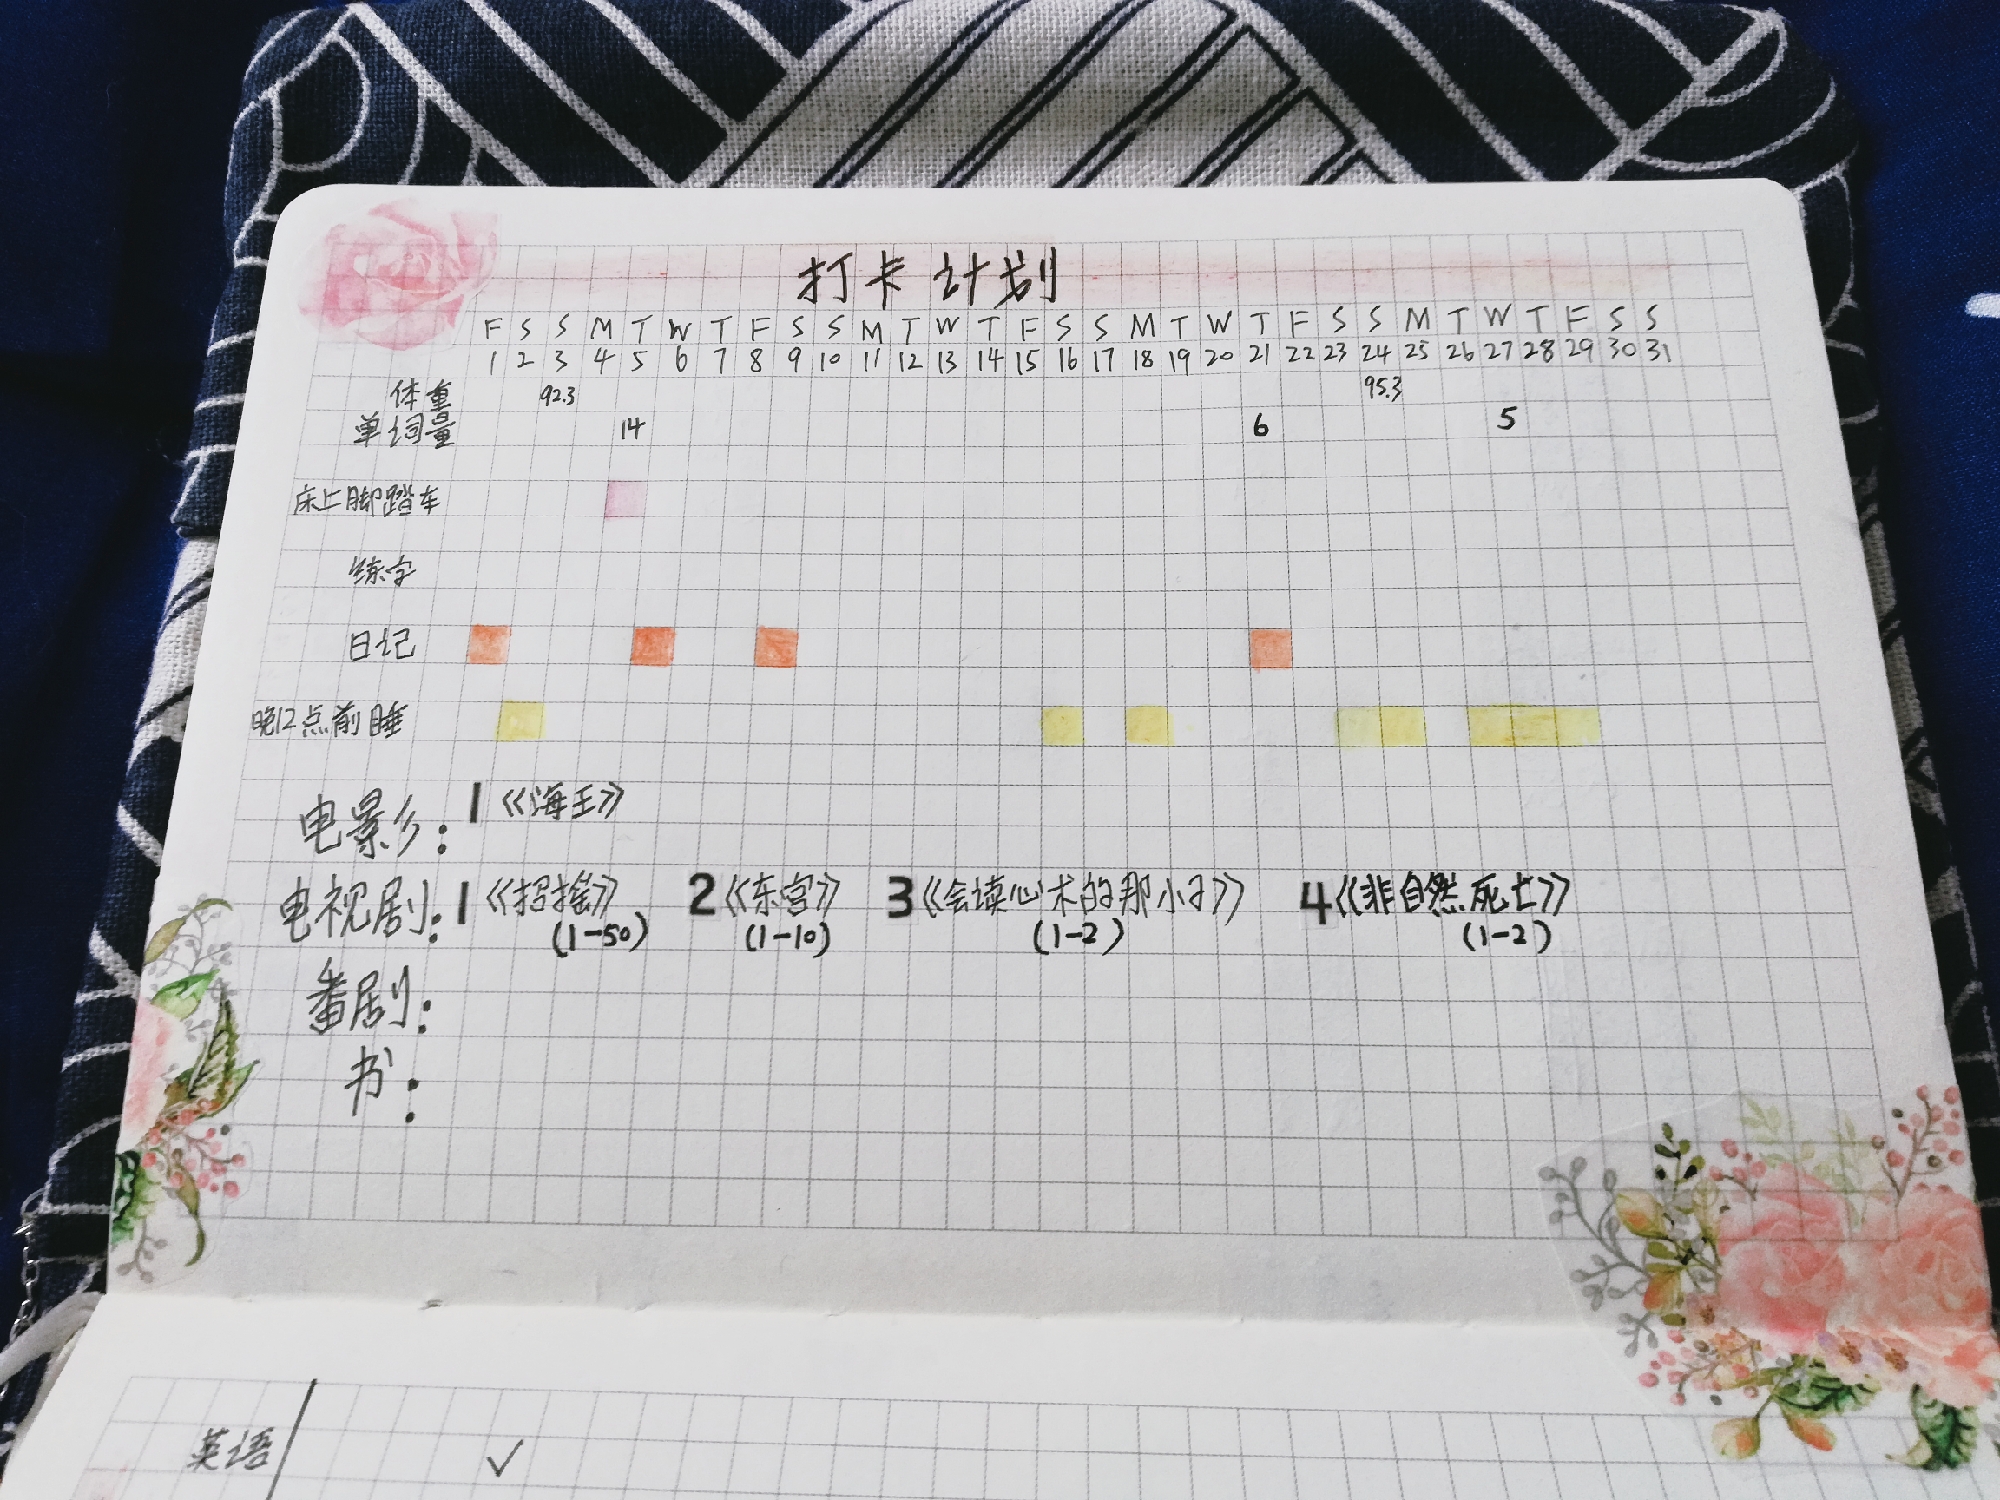 打卡计划
F S S M T W T F S S M T W T F S S M T W T F S S M T W T F S S
1 2 3 4 5 6 7 8 9 10 11 12 13 14 15 16 17 18 19 20 21 22 23 24 25 26 27 28 29 30 31
体重 92.3 95.3
单词量 14 6 5
床上脚踏车
练字
日记
晚12点前睡
电影: 1《海王》
电视剧: 1《招摇》 2《东宫》 3《会读心术的那小子》 4《非自然死亡》
(1-50) (1-10) (1-2) (1-2)
番剧:
书:
英语 ✓